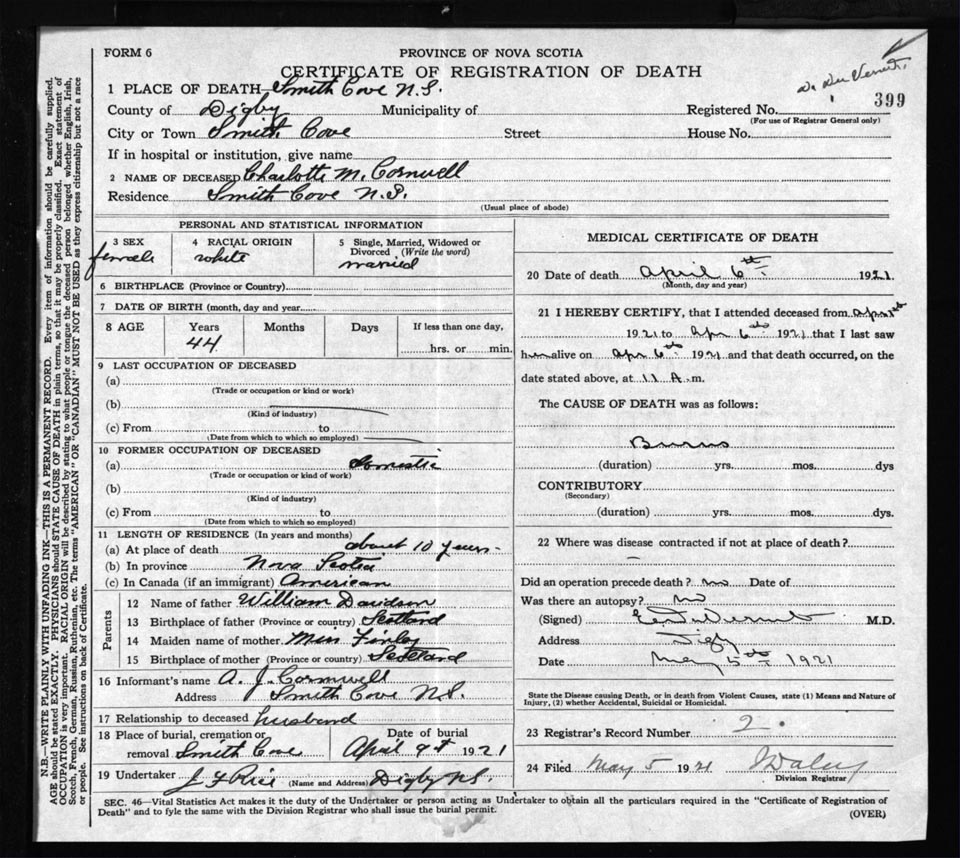 FORM 6
PROVINCE OF NOVA SCOTIA
CERTIFICATE OF REGISTRATION OF DEATH
1 PLACE OF DEATH Smith Cove N.S.
County of Digby Municipality of Registered No. 399
(For use of Registrar General only)
City or Town Smith Cove Street House No.
If in hospital or institution, give name
2 NAME OF DECEASED Charlotte M. Cornwell
Residence Smith Cove N.S.
(Usual place of abode)
PERSONAL AND STATISTICAL INFORMATION
3 SEX 4 RACIAL ORIGIN 5 Single, Married, Widowed or Divorced (Write the word)
female white married
6 BIRTHPLACE (Province or Country)
7 DATE OF BIRTH (month, day and year
8 AGE Years Months Days If less than one day,
44 hrs. or min.
9 LAST OCCUPATION OF DECEASED
(a)
(Trade or occupation or kind or work)
(b)
(Kind of industry)
(c) From to
(Date from which to which so employed)
10 FORMER OCCUPATION OF DECEASED
(a) Domestic
(Trade or occupation or kind of work)
(b)
(Kind of industry)
(c) From to
(Date from which to which so employed)
11 LENGTH OF RESIDENCE (In years and months)
(a) At place of death about 10 years-
(b) In province Nova Scotia
(c) In Canada (if an immigrant) American
Parents
12 Name of father William Davidson
13 Birthplace of father (Province or country) Scotland
14 Maiden name of mother Miss Finley
15 Birthplace of mother (Province or country) Scotland
16 Informant's name A. J. Cornwell
Address Smith Cove N.S.
17 Relationship to deceased husband
18 Place of burial, cremation or Date of burial
removal Smith Cove April 9th 1921
19 Undertaker J F Rice (Name and Address) Digby N.S.
MEDICAL CERTIFICATE OF DEATH
20 Date of death April 6th 1921
(Month, day and year)
21 I HEREBY CERTIFY, that I attended deceased from Apr 1st
1921 to Apr 6th 1921 that I last saw
her alive on Apr 6th 1921 and that death occurred, on the
date stated above, at 11 A.m.
The CAUSE OF DEATH was as follows:
Burns
(duration) yrs. mos. dys
CONTRIBUTORY
(Secondary)
(duration) yrs. mos. dys.
22 Where was disease contracted if not at place of death?
Did an operation precede death? no Date of
Was there an autopsy? no
(Signed) M.D.
Address Digby
Date May 5th 1921
State the Disease causing Death, or in death from Violent Causes, state (1) Means and Nature of
Injury, (2) whether Accidental, Suicidal or Homicidal.
23 Registrar's Record Number 2
24 Filed May 5 1921
Division Registrar
SEC. 46—Vital Statistics Act makes it the duty of the Undertaker or person acting as Undertaker to obtain all the particulars required in the "Certificate of Registration of
Death" and to fyle the same with the Division Registrar who shall issue the burial permit.
(OVER)
N.B.—WRITE PLAINLY WITH UNFADING INK—THIS IS A PERMANENT RECORD. Every item of information should be carefully supplied.
AGE should be stated EXACTLY. PHYSICIANS should STATE CAUSE OF DEATH in plain terms, so that it may be properly classified. Exact statement of
OCCUPATION is very important. RACIAL ORIGIN will be described by stating to what people or tongue the deceased person belonged, whether English, Irish,
Scotch, French, German, Russian, Ruthenian, etc. The terms "AMERICAN" OR "CANADIAN" MUST NOT BE USED as they express citizenship but not a race
or people. See instructions on back of Certificate.